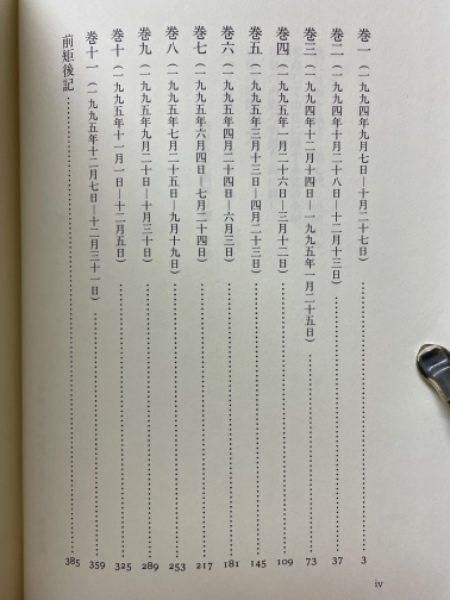 巻一(一九九四年九月七日―十月二十七日)……3
巻二(一九九四年十月二十八日―十二月十三日)……37
巻三(一九九四年十二月十四日―一九九五年一月二十五日)……73
巻四(一九九五年一月二十六日―三月十二日)……109
巻五(一九九五年三月十三日―四月二十三日)……145
巻六(一九九五年四月二十四日―六月三日)……181
巻七(一九九五年六月四日―七月二十四日)……217
巻八(一九九五年七月二十五日―九月十九日)……253
巻九(一九九五年九月二十日―十月三十日)……289
巻十(一九九五年十一月一日―十二月五日)……325
巻十一(一九九五年十二月七日―十二月三十一日)……359
前矩後記……385
iv